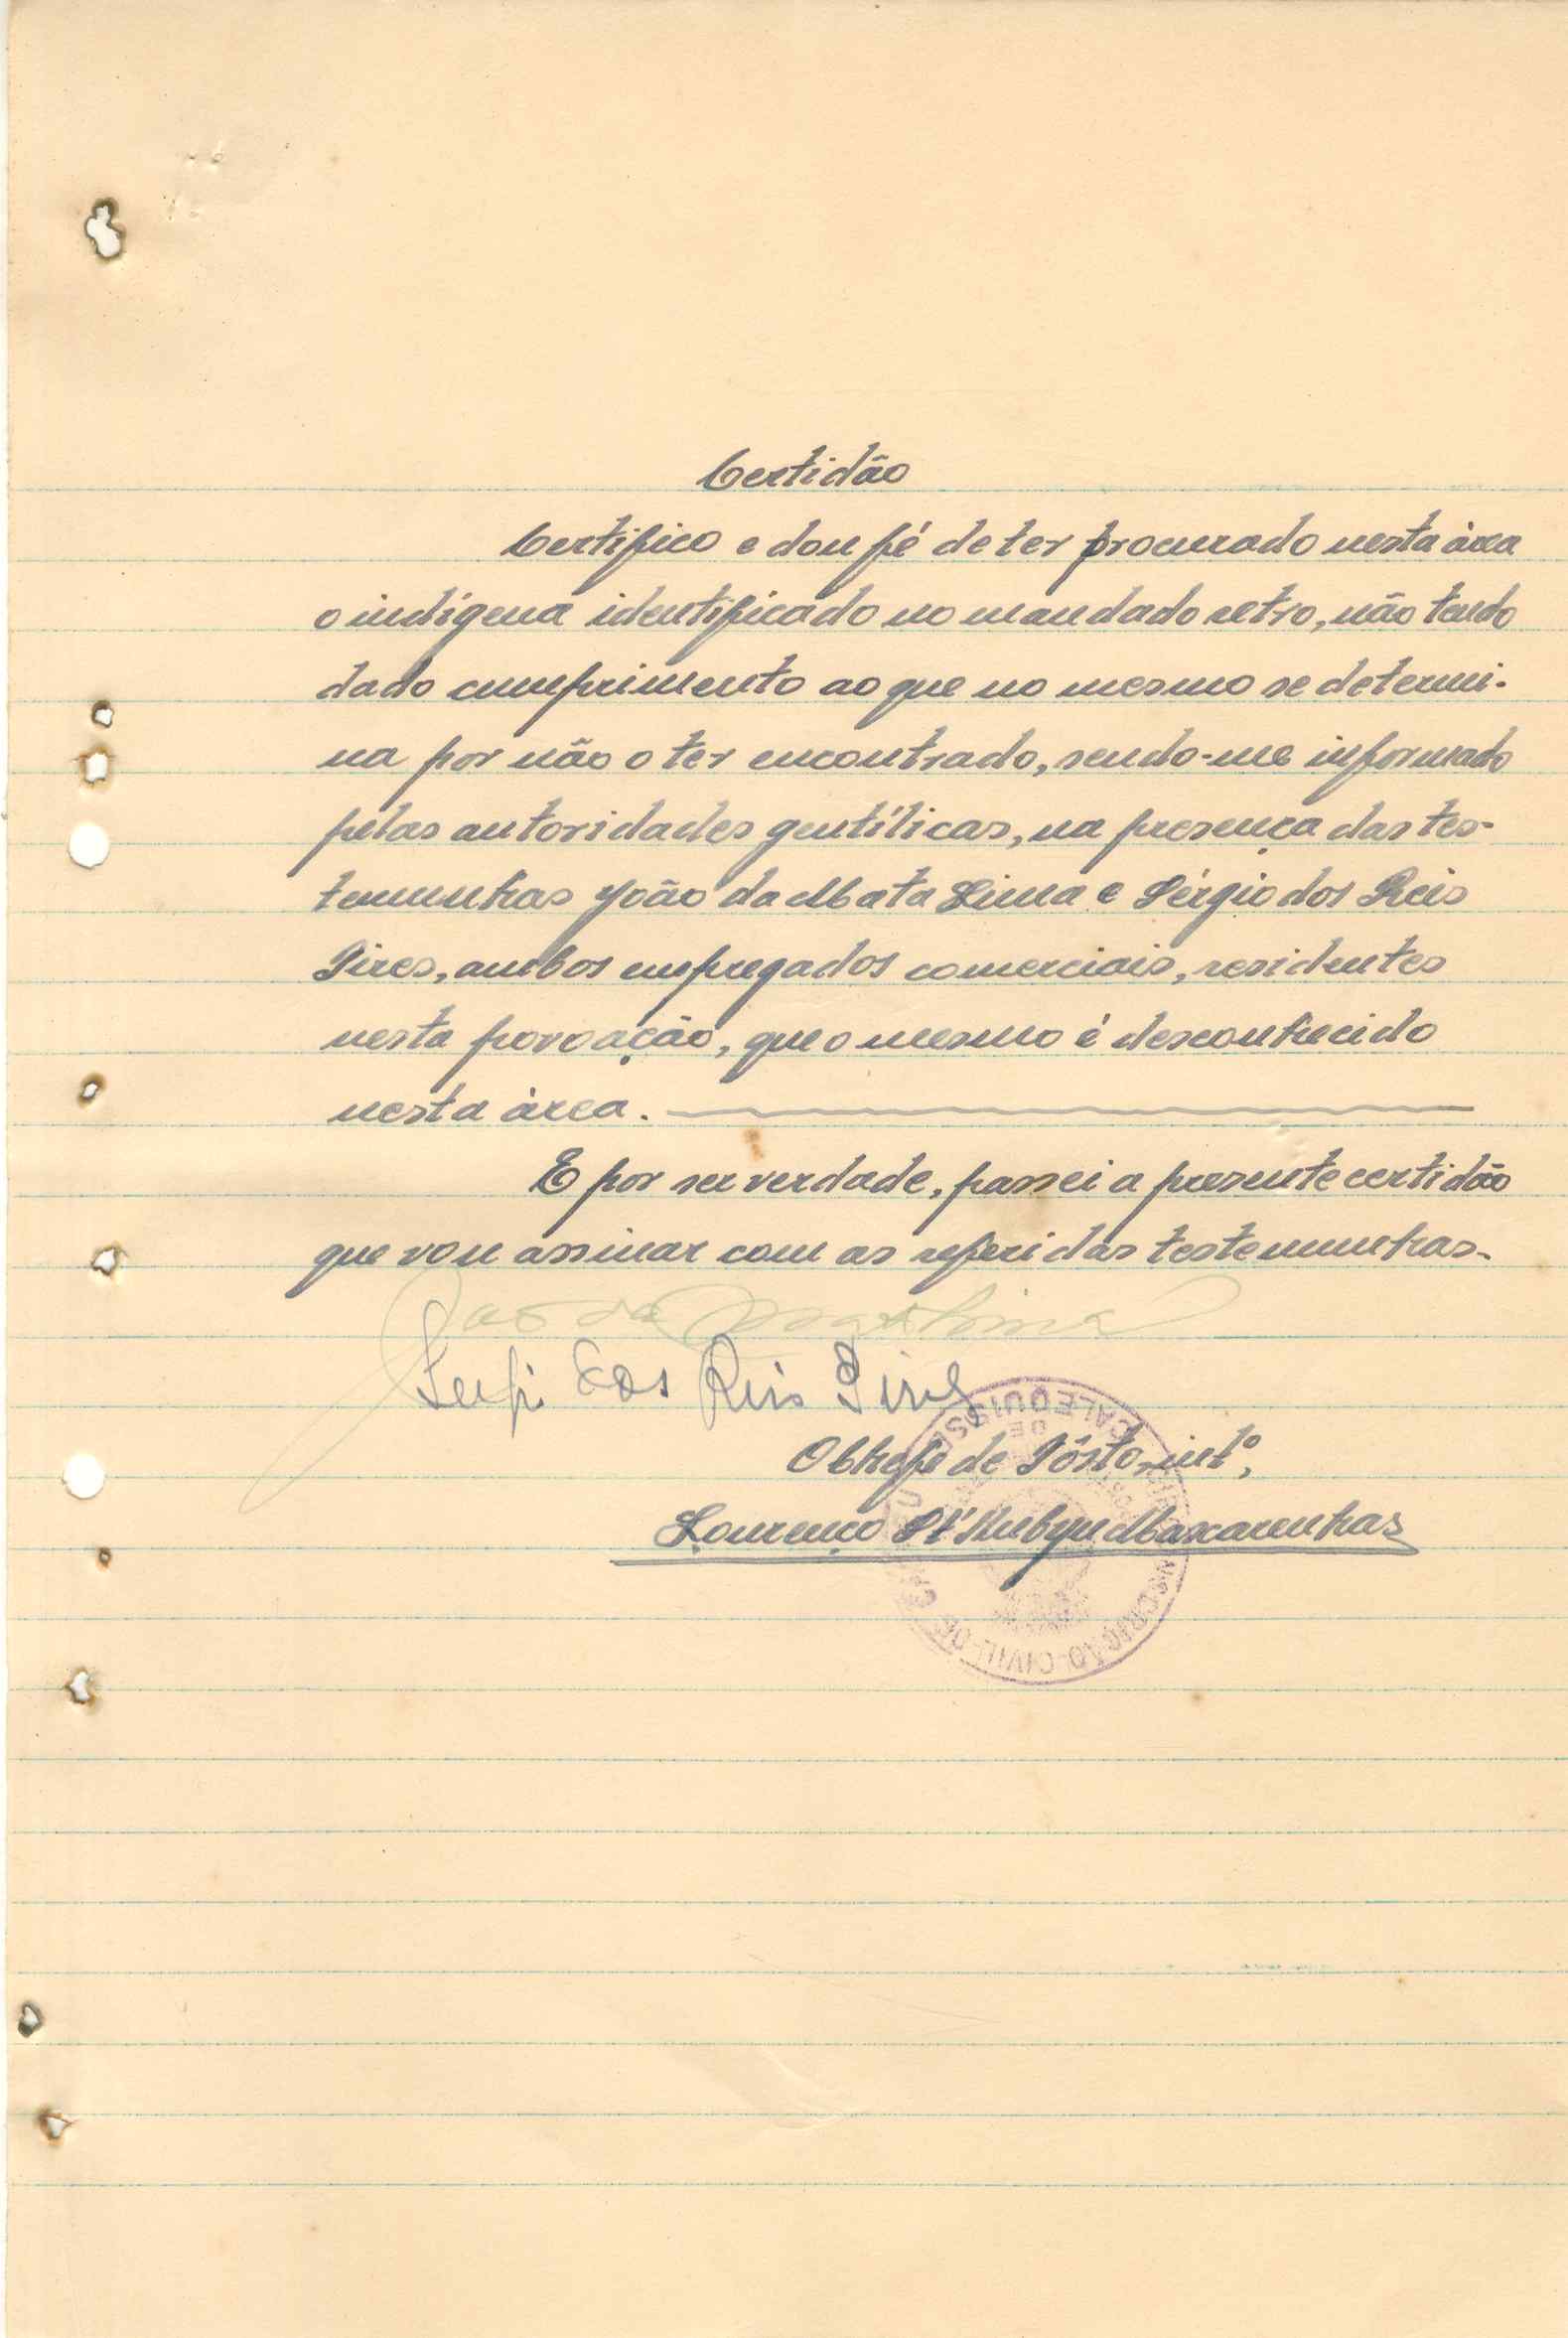 Certidão
Certifico e dou fé de ter procurado nesta àrea
o indígena identificado no mandado retro, não tendo
dado cumprimento ao que no mesmo se determi-
na por não o ter encontrado, sendo-me informado
pelas autoridades gentílicas, na presença das tes-
temunhas João da Mata Lima e Sérgio dos Reis
Pires, ambos empregados comerciais, residentes
nesta povoação, que o mesmo é desconhecido
nesta àrea.
E por ser verdade, passei a presente certidão
que vou assinar com as referidas testemunhas.
João da Mata Lima
dos Reis Pires
O Chefe de Pôsto, intº,
Lourenço Mascarenhas
CALEQUISSE
CIVIL DE